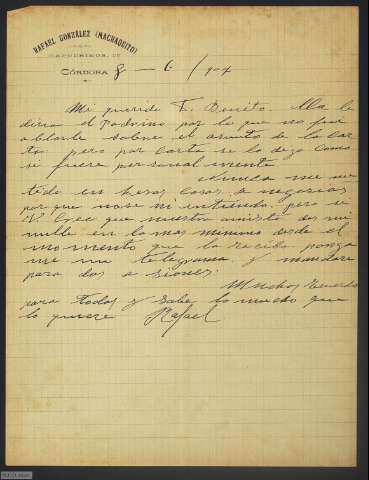 RAFAEL GONZÁLEZ (MACHAQUITO)
CAPUCHINOS,
CÓRDOBA 8 — 6 / 904
Mi querido F. Benito. Ya le
diria el Padrino por lo que no fui
ablarle sobre el asunto de la car
ta pero por carta se lo digo como
si fuera personalmente
Nunca me me
tido en hesas cosas de negocios
porque no se ni entiendo pero si
V. Cree que nuestra amista
en lo mas minimo desde el
momento que la reciba ponga
me un telegrama y mandare
para dos asiones.
Muchos recuerdos
para todos y sabe lo mucho que
lo quiere Rafael